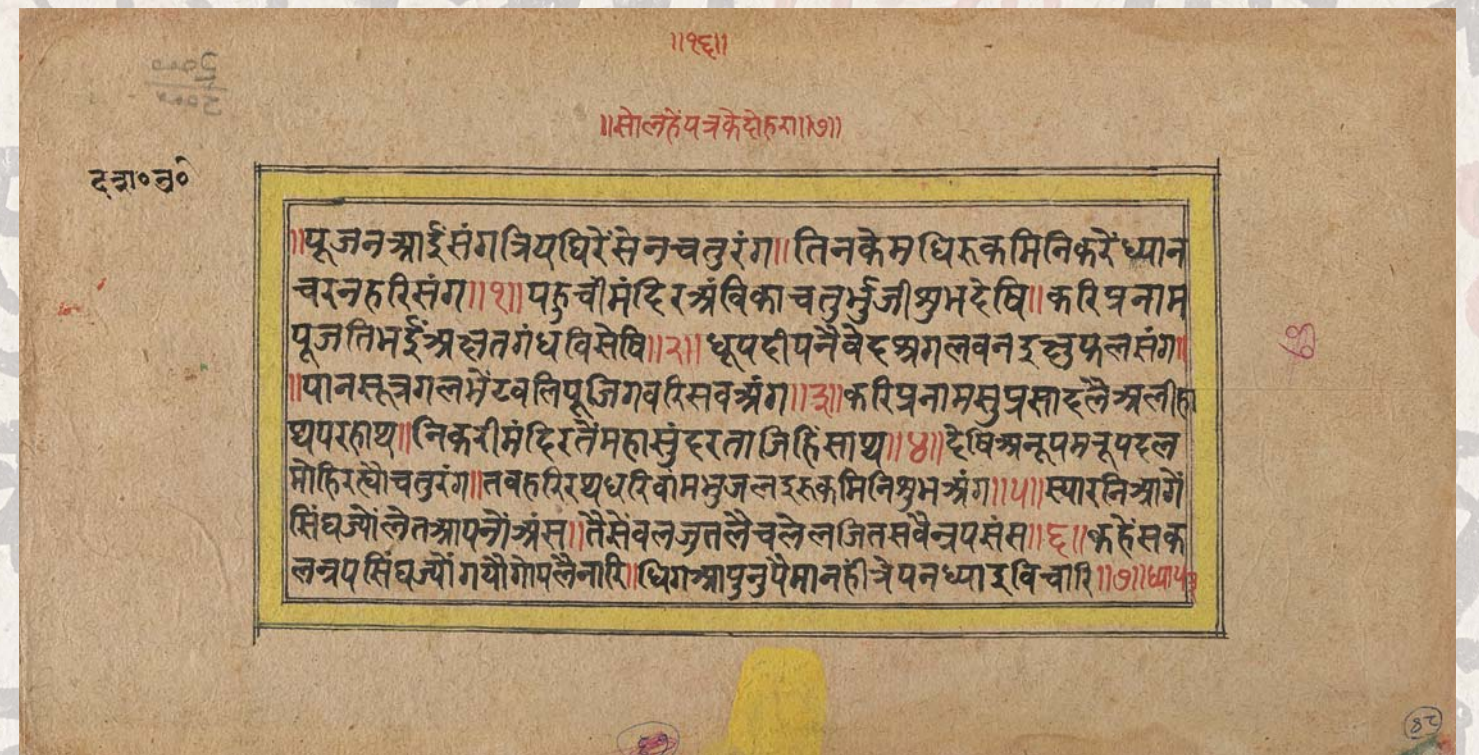 ॥१६॥
॥सोलहेंपत्रकेदोहरा॥७॥
॥पूजनआईसंगत्रियघिरेंसेनचतुरंग॥तिनकेमधिरुकमिनिकरेंध्यान
चरनहरिसंग॥१॥पहुचीमंदिरअंविकाचतुर्भुजीशुभदेषि॥करिप्रनाम
पूजतिभईअछतगंधविसेषि॥२॥धूपदीपनैवेदअगलवनइछुफलसंग॥
॥पानसूत्रगलभेंटवलिपूजिगवरिसवअंग॥३॥करिप्रनामसुप्रसादलैअलीहा
थपरहाथ॥निकरीमंदिरतैंमहासुंदरताजिहिंसाथ॥४॥देषिअनूपमनृपदल
मोहिरत्यौचतुरंग॥तवहरिरथधरिवांमभुजलइरुकमिनिशुभअंग॥५॥स्यारनिआगें
सिंघज्योंलेतआपनौंअंस॥तैसेंवलजुतलैचलेलजितसवैनृपसंस॥६॥कहेसक
लनृपसिंघज्यौंगयौगोपलैनारि॥धिगआपुनुपैमानहींत्रेपनध्याइविचारि॥७॥ध्याय५३
४८